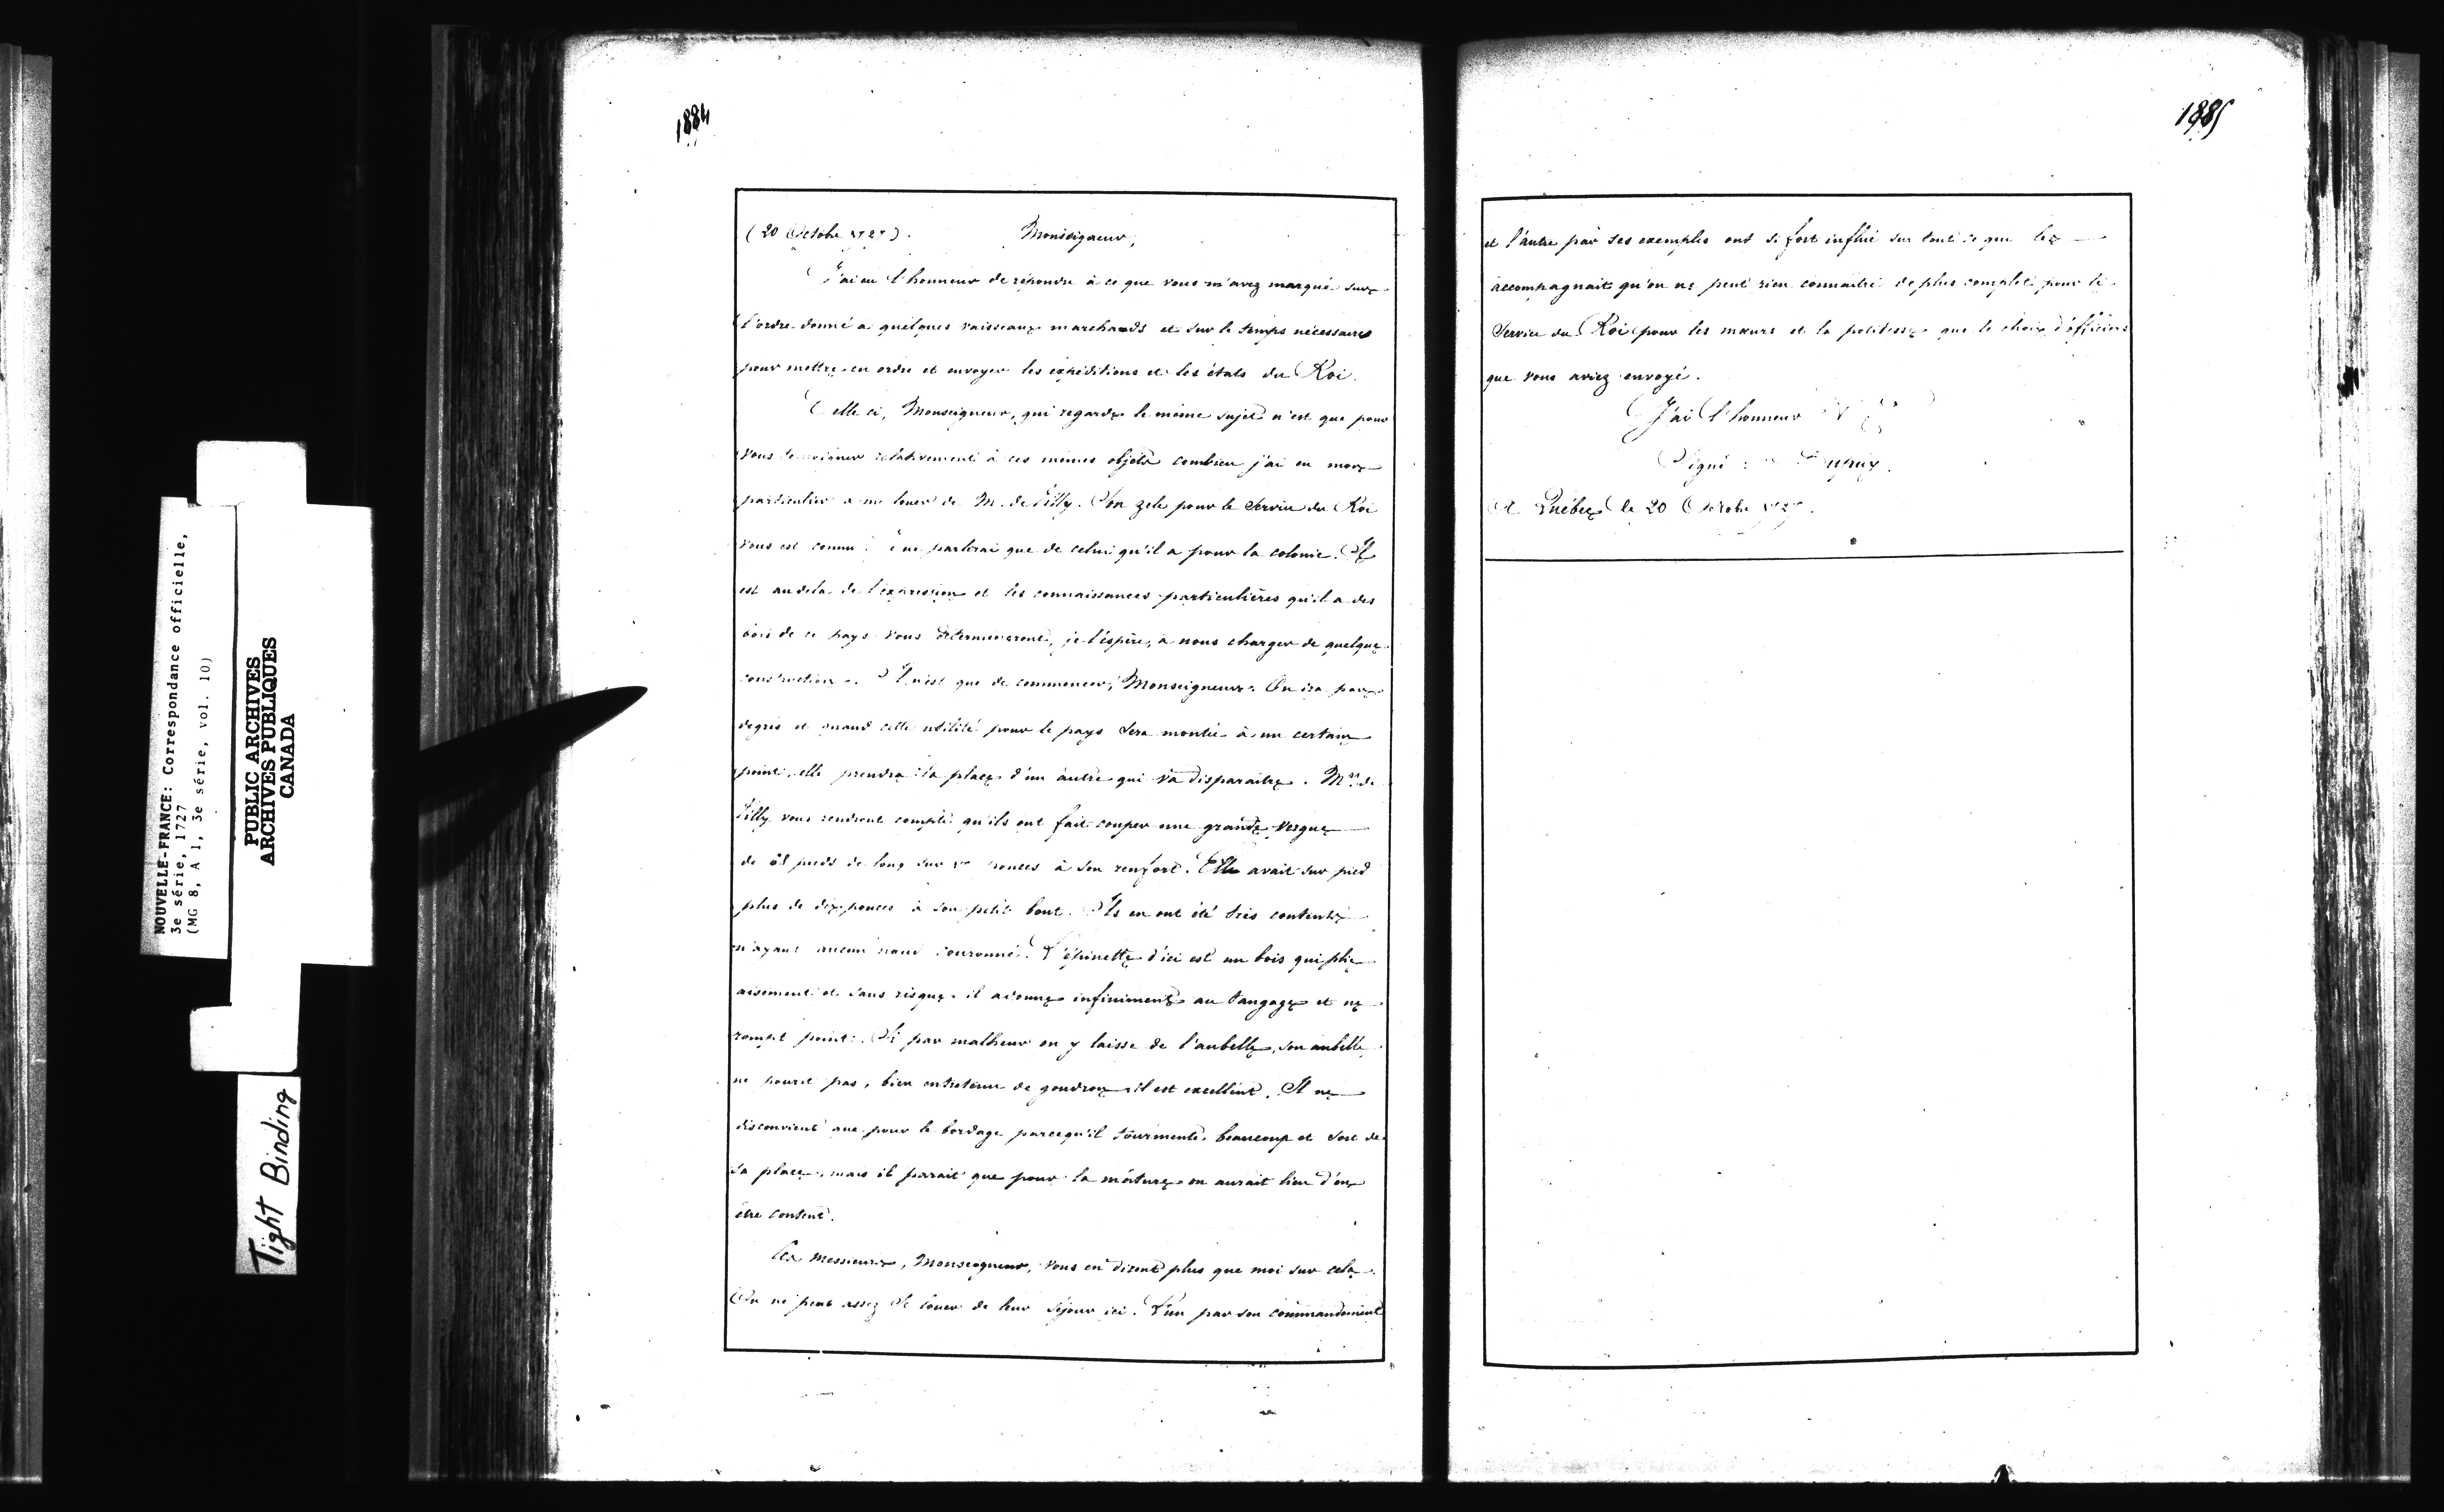 1884
(20 Octobre 1727). Monseigneur,
J'ai eu l'honneur de répondre à ce que vous m'avez marqué sur
l'ordre donné a quelques vaisseaux marchands et sur le temps nécessaires
pour mettre en ordre et envoyer les expéditions et les états du Roi.
Celle ci, Monseigneur, qui regarde le même sujet n'est que pour
vous témoigner relativement à ces mêmes objets combien j'ai en mon
particulier a me louer de M. de Tilly. Son zele pour le Service du Roi
vous est connu. Je ne parlerai que de celui qu'il a pour la colonie. Il
est audela de l'expression et les connaissances particulières qu'il a des
bois de ce pays vous détermineront, je l'éspère, à nous charger de quelque
construction. Il n'est que de commencer, Monseigneur. On ira par
degrés et quand cette utilité pour le pays sera montée à un certain
point, elle prendra la place d'un autre qui va disparaitre. Mrs de
Tilly vous rendront compte qu'ils ont fait couper une grande vergue
de pieds de long sur pouces à son renfort. Elle avait sur pied
plus de dix pouces à son petit bout. Ils en ont été très contents
n'ayant aucun nœud couronné. L'épinette d'ici est un bois qui plie
aisement et sans risque. il adonne infiniment au tangage et ne
rompt point. Si par malheur on y laisse de l'aubelle, son aubelle
ne pourit pas, bien entretenu de goudron il est excellent. Il ne
disconvient que pour le bordage parcequ'il tourmente beaucoup et sort de
sa place, mais il parait que pour la mâture on aurait lieu d'en
être content.
Ces Messieurs, Monseigneur, vous en diront plus que moi sur cela.
On ne peut assez se louer de leur séjour ici. L'un par son commandement
1885
et l'autre par ses exemples ont si fort influé sur tout ce que les
accompagnait qu'on ne peut rien connaitre de plus complet pour le
Service du Roi pour les mœurs et la politesse que le choix d'officiers
que vous aviez envoyé.
J'ai l'honneur
Signé : Dupuy.
A Québec le 20 Octobre 1727.
NOUVELLE-FRANCE: Correspondance officielle,
3e série, 1727
(MG 8, A 1, 3e série, vol. 10)
PUBLIC ARCHIVES
ARCHIVES PUBLIQUES
CANADA
Tight Binding